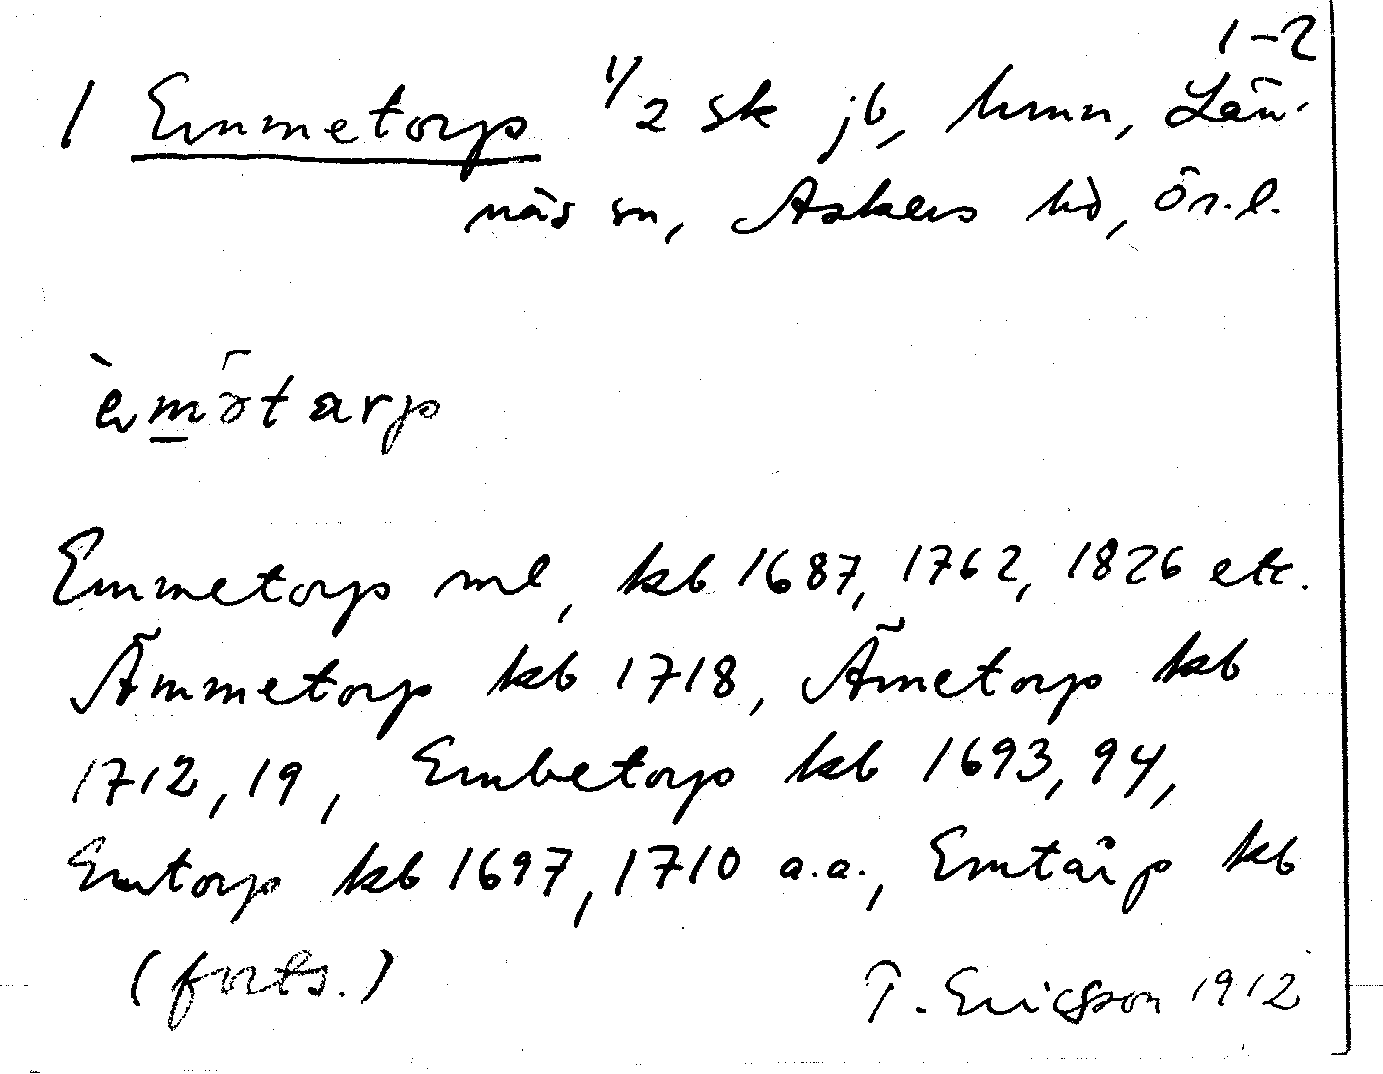 1-2
1 Emmetorp 1/2 sk jb, hmn, Län-
näs sn, Askers hd, Ör. l.
èmǝtarp
Emmetorp ml, kb 1687, 1762, 1826 etc.
Ämmetorp kb 1718, Ämetorp kb
1712, 19, Embetorp kb 1693, 94,
Emtorp kb 1697, 1710 a.a., Emtårp kb
(forts.)
T. Ericsson 1912